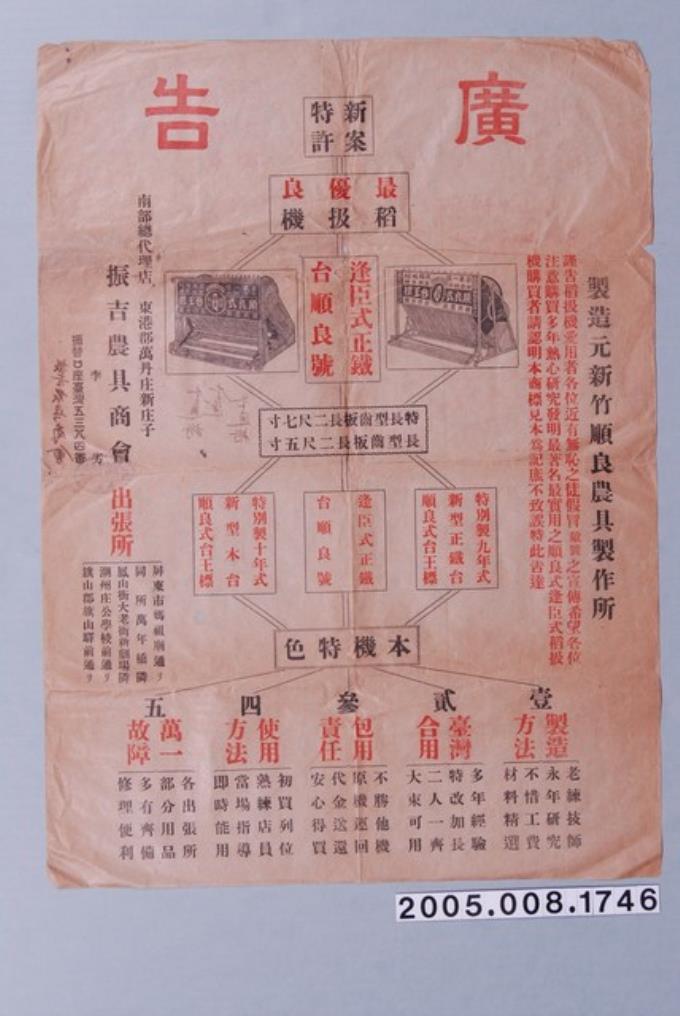 廣告
新案特許
最優良
稻扱機
製造元新竹順良農具製作所
謹告稻扱機愛用者各位近有無恥之徒假冒 之宣傳希望各位
注意購買多年熱心研究發明最著名最實用之順良式逢臣式稻扱
機購買者請認明本商標見本為記庶不致誤特此告達
逢臣式正鐵
台順良號
南部總代理店 東港郡萬丹庄新庄子
振吉農具商會
李
特長型齒板長二尺七寸
長型齒板長二尺五寸
特別製九年式
新型正鐵台
順良式台王標
逢臣式正鐵
台順良號
特別製十年式
新型木台
順良式台王標
出張所
屏東市媽祖廟通リ
同所萬年橋隣
鳳山街大老街新劇場隣
潮州庄公學校前通リ
旗山郡旗山驛前通リ
本機特色
壹
製造方法
老練技師
永年研究
不惜工費
材料精選
貳
臺灣合用
多年經驗
特改加長
二人一齊
大束可用
參
包用責任
不勝他機
原機返回
代金送還
安心得買
四
使用方法
初買列位
熟練店員
當場指導
即時能用
五
萬一故障
各出張所
部分用品
多有齊備
修理便利
2005.008.1746